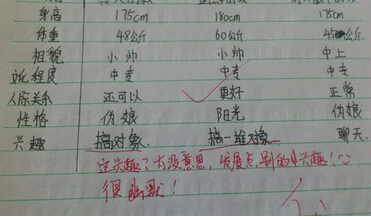 身高 175cm 180cm 175cm
体重 48公斤 60公斤 45公斤
相貌 小帅 小帅 中上
文化程度 中专 中专 中专
人际关系 还可以 更好 正常
性格 伪娘 阳光 伪娘
兴趣 搞对象. 搞一堆对象 聊天.
这兴趣了太没意思,发展点别的小兴趣!~
很幽默!